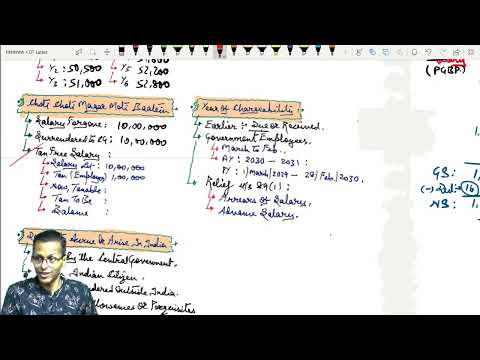 Y2 : 50,500
Y5 52,200
Y3 : 51,000
Y6 52,800
Salary
(PGBP)
Choti Choti Magar Moti Baatein
Salary Forgone : 10,00,000
Surrendered to CG : 10,00,000
Tax Free Salary :
Salary Gt : 10,00,000
Tax (Employer) 1,00,000
Now, Taxable :
Tax To Be :
Salary :
Year Of Chargeability
Earlier : Due or Received.
Government Employees.
March to Feb.
AY : 2030 - 2031 :
PY : 1/March/2029 - 28/Feb/2030.
Relief u/s 89(1) :
Arrears Of Salary.
Advance Salary.
GS :
16
NS :
Accrue Or Arise In India
by the Central Government.
Indian Citizen.
Outside India.
Allowances Or Perquisites